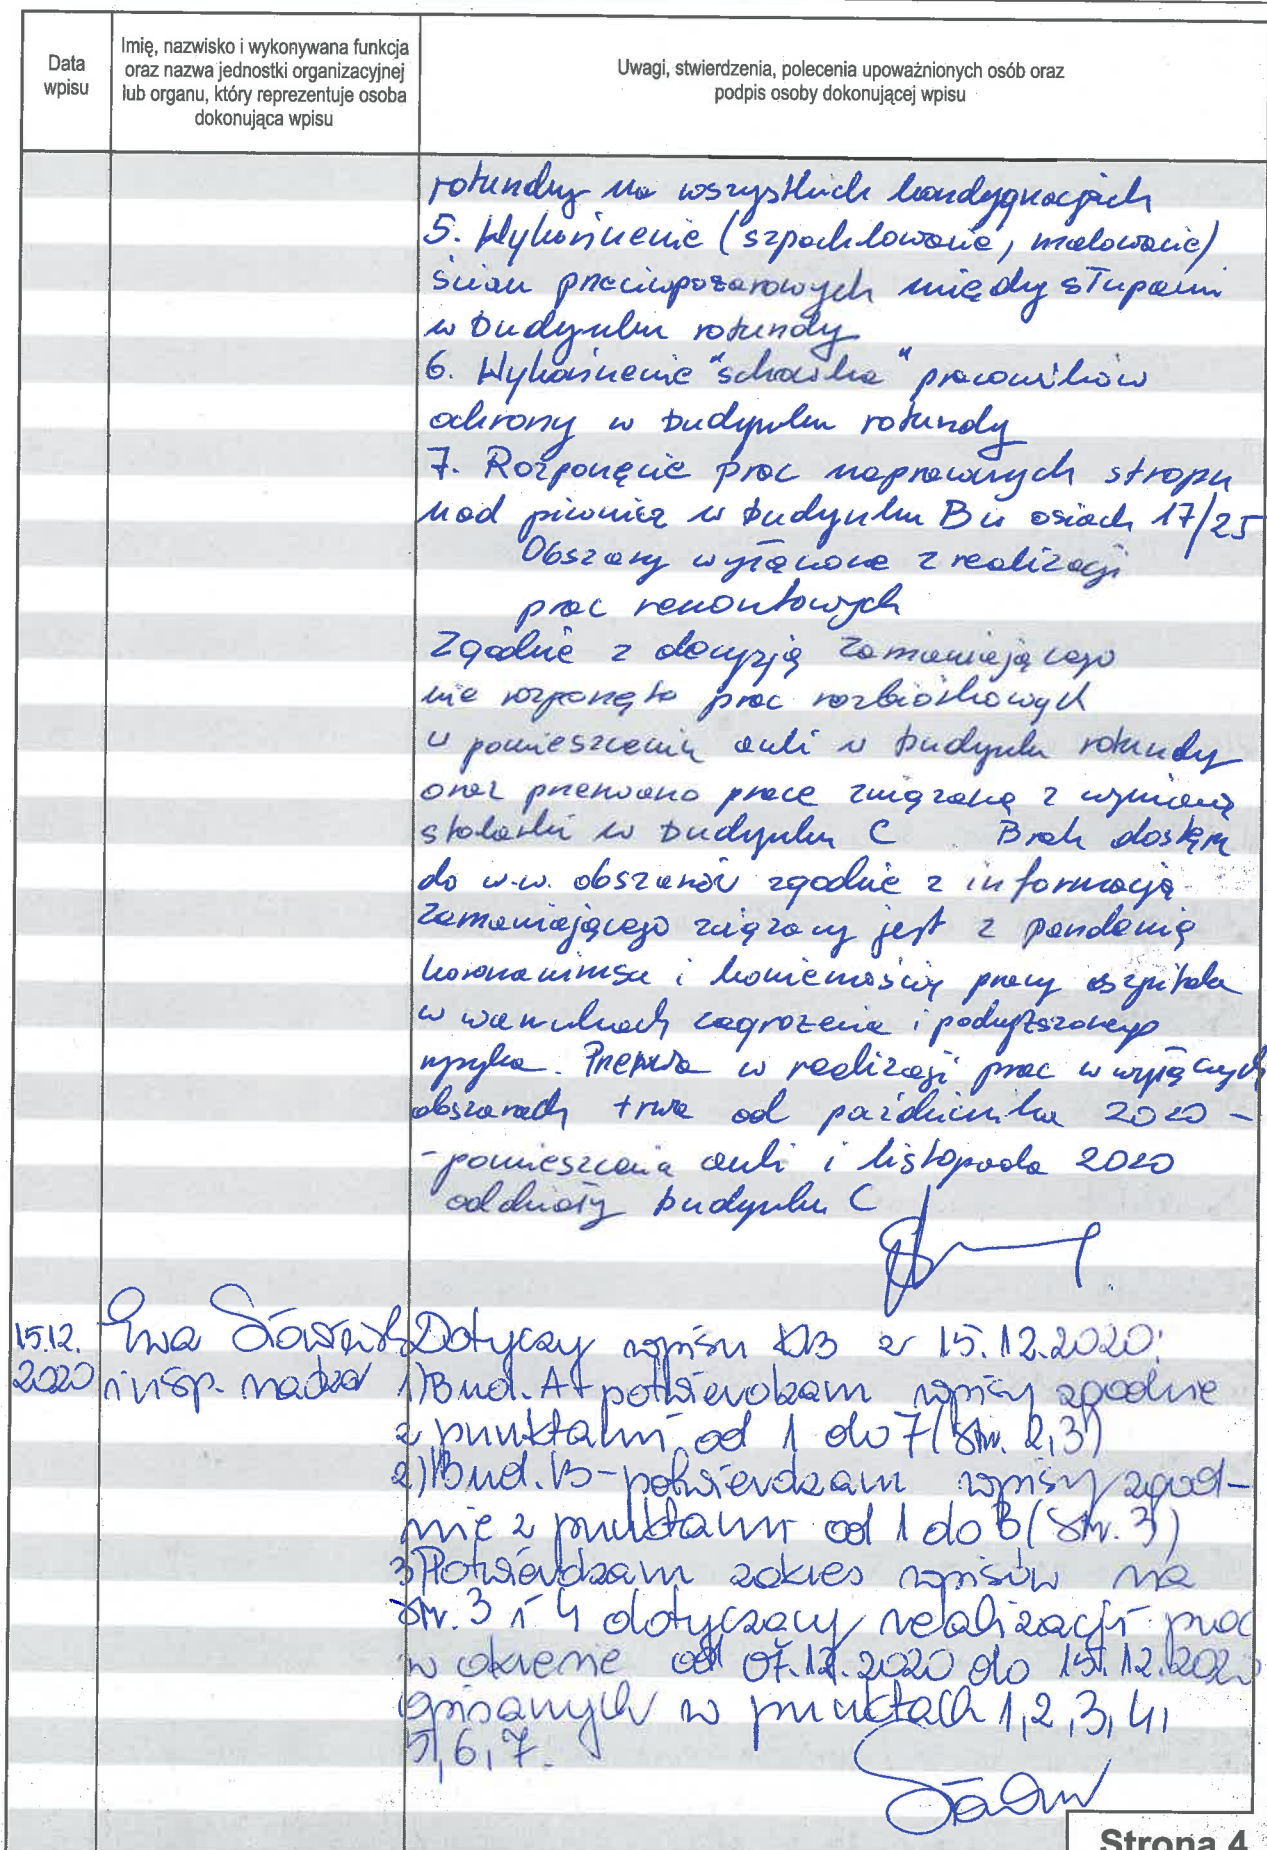 Data
wpisu
Imię, nazwisko i wykonywana funkcja
oraz nazwa jednostki organizacyjnej
lub organu, który reprezentuje osoba
dokonująca wpisu
Uwagi, stwierdzenia, polecenia upoważnionych osób oraz
podpis osoby dokonującej wpisu
rotundy na wszystkich kondygnacjach
5. Wykończenie (szpachlowanie, malowanie)
ścian przeciwpożarowych między słupami
w budynku rotundy
6. Wykończenie "schowka" pracowników
ochrony w budynku rotundy
7. Rozpoczęcie prac naprawczych stropu
nad piwnicą w budynku B w osiach 17/25
Obszary wyłączone z realizacji
prac remontowych
Zgodnie z decyzją Zamawiającego
nie rozpoczęto prac rozbiórkowych
w pomieszczeniu auli w budynku rotundy
oraz przerwano prace związaną z wymianą
stolarki w budynku C. Brak dostępu
do w.w. obszarów zgodnie z informacją
Zamawiającego związany jest z pandemią
koronawirusa i koniecznością pracy szpitala
w warunkach zagrożenia i podwyższonego
ryzyka. Przerwa w realizacji prac w wyłączonych
obszarach trwa od października 2020 -
- pomieszczenia auli i listopada 2020
oddziały budynku C
15.12.
2020
Ewa
insp. nadzor
Dotyczy wpisu KB z 15.12.2020:
1) Bud. A - potwierdzam wpisy zgodnie
z punktami od 1 do 7 (str. 2,3)
2) Bud. B - potwierdzam wpisy zgod-
nie z punktami od 1 do 3 (str. 3)
3) Potwierdzam zakres wpisów na
str. 3 i 4 dotyczący realizacji prac
w okresie od 07.12.2020 do 15.12.2020
opisanych w punktach 1, 2, 3, 4,
5, 6, 7.
Strona 4